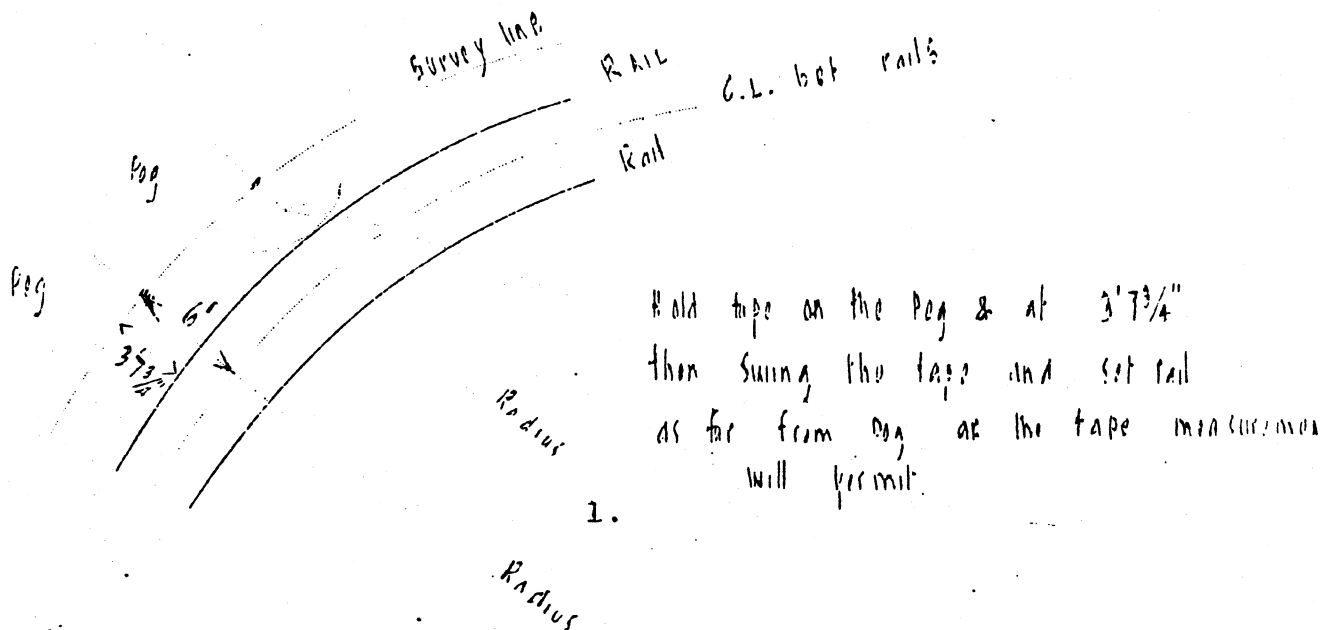 Survey line
RAIL
C.L. bet rails
Rail
Peg
Peg
6'
3'7 3/4"
Hold tape on the Peg & at 3'7 3/4"
then swing the tape and set rail
as far from peg as the tape measuremen
will permit.
Radius
1.
Radius